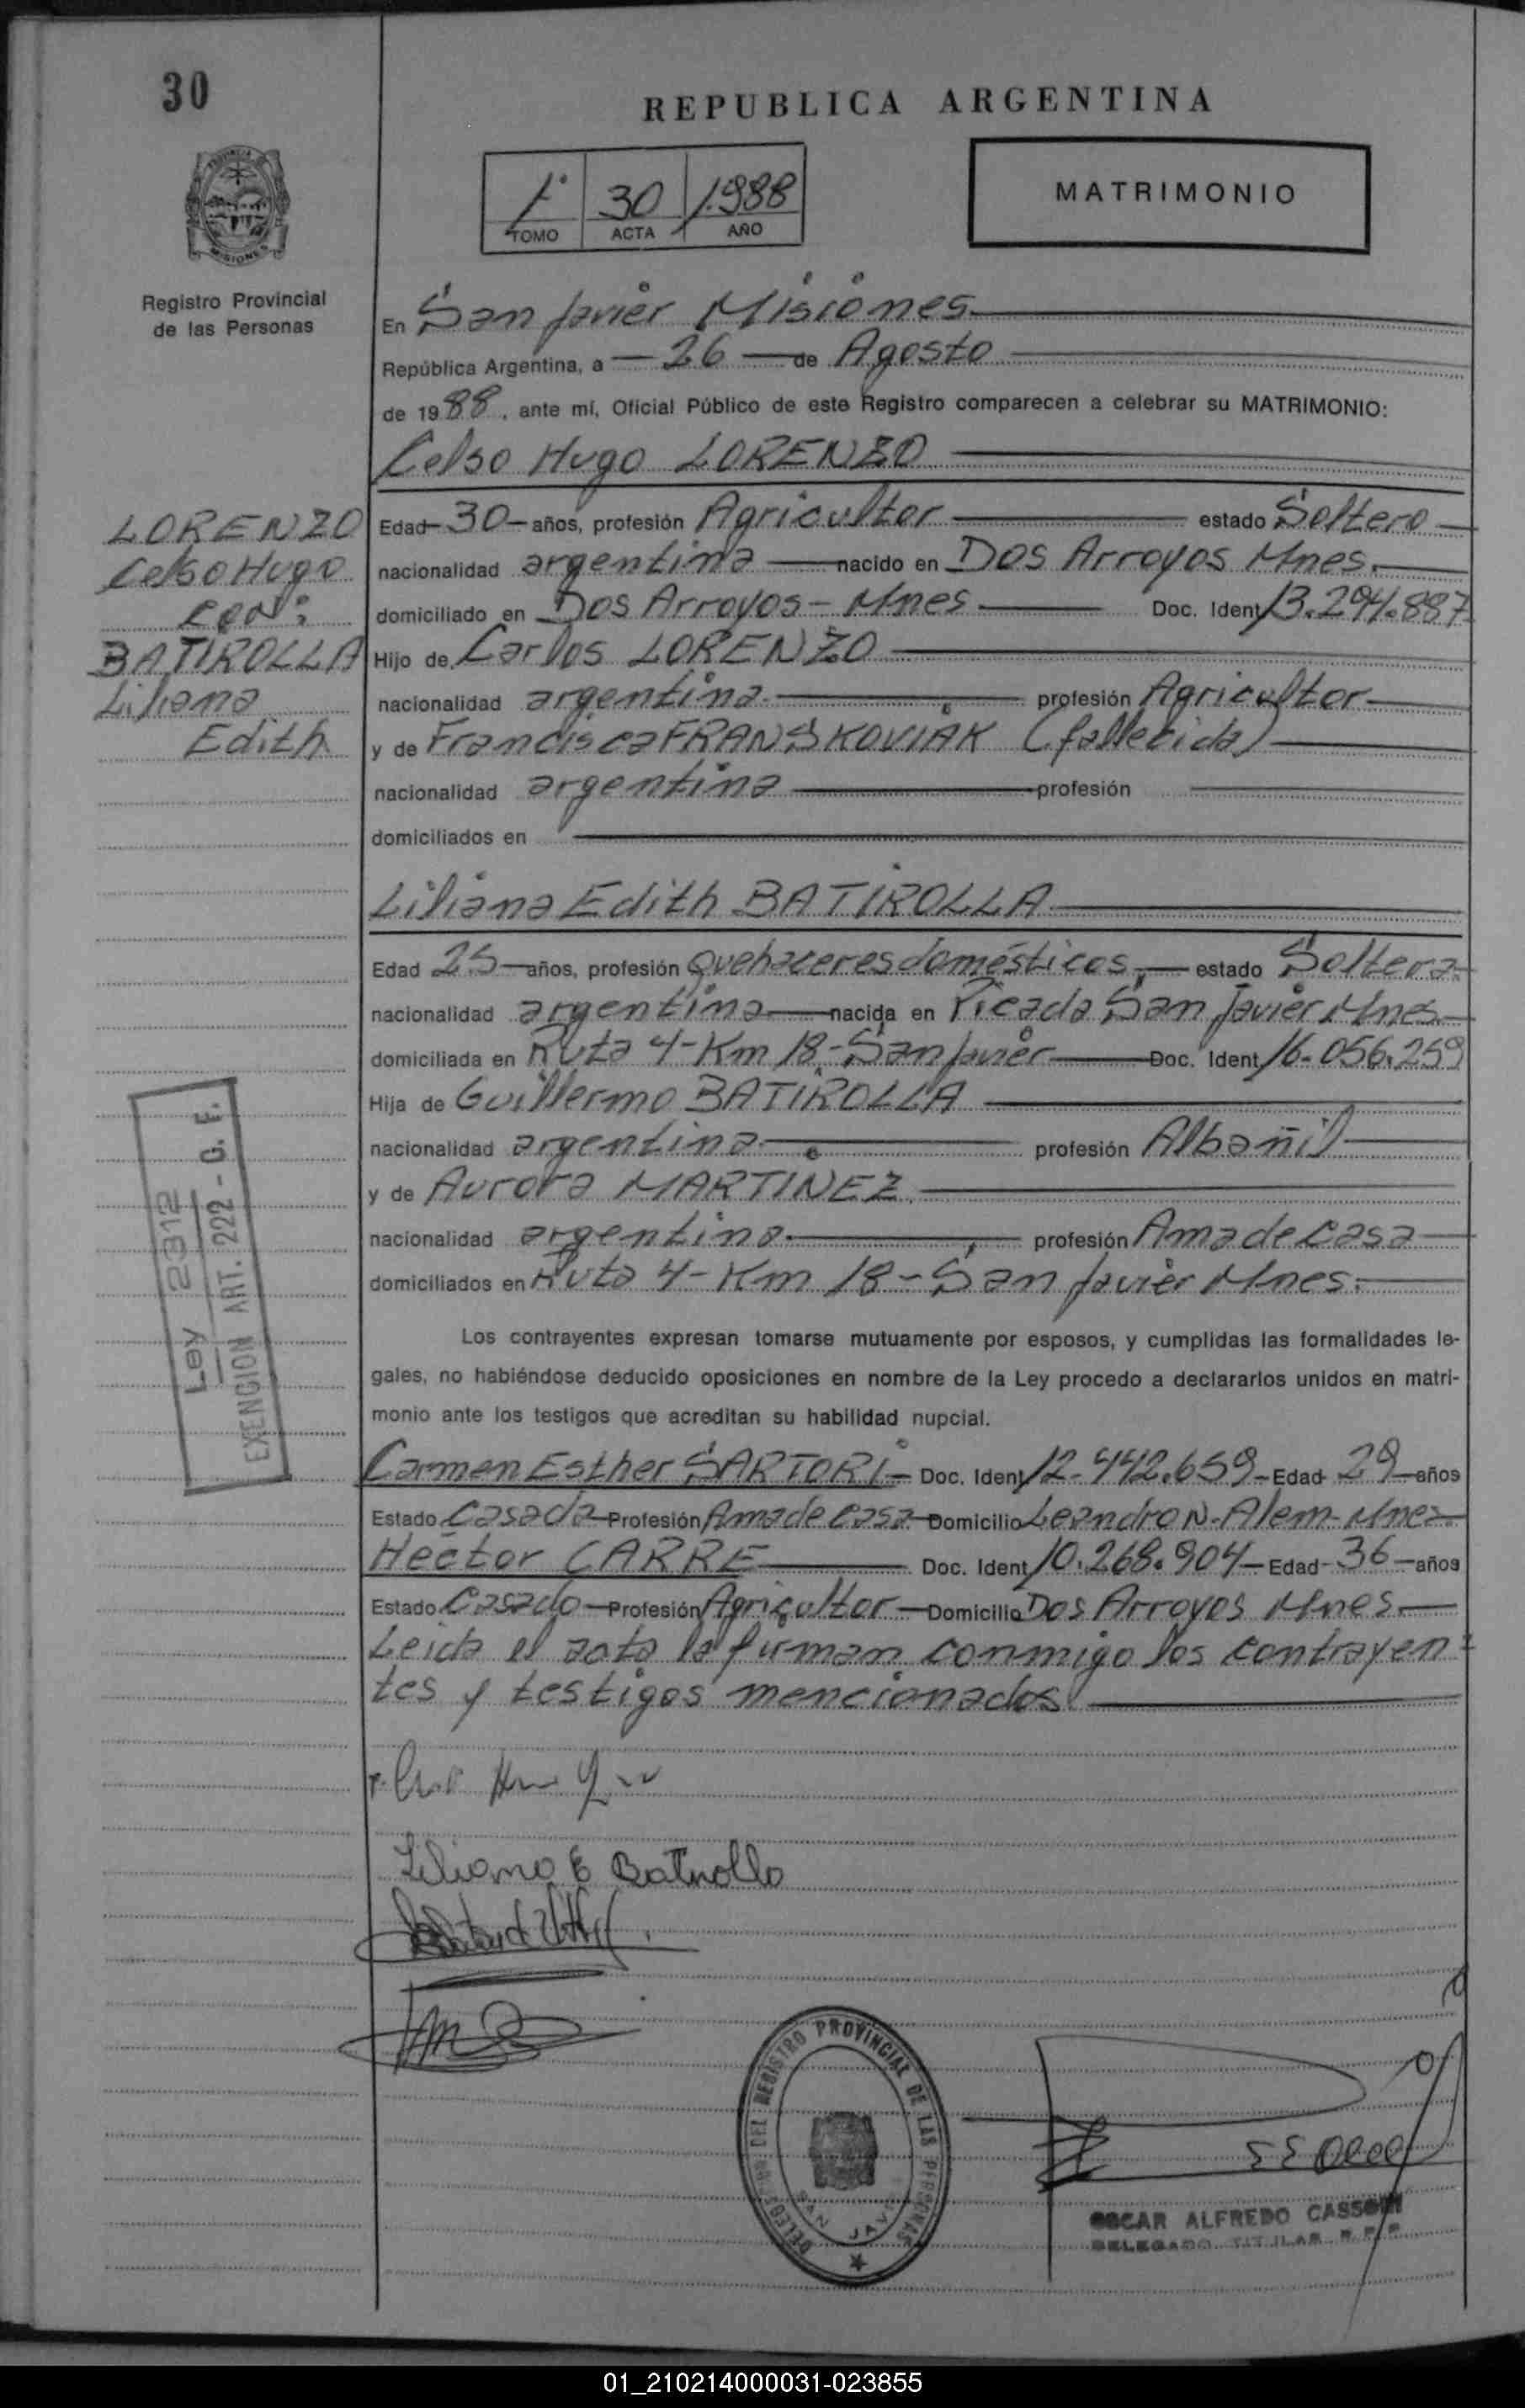 30
REPUBLICA ARGENTINA
1° 30 1.988
TOMO ACTA AÑO
MATRIMONIO
PROVINCIA DE
MISIONES
Registro Provincial
de las Personas
En San Javier Misiones
República Argentina, a 26 de Agosto
de 1988, ante mí, Oficial Público de este Registro comparecen a celebrar su MATRIMONIO:
Celso Hugo LORENZO
LORENZO
Celso Hugo
CON:
BATIROLLA
Liliana
Edith
Edad 30 años, profesión Agricultor estado Soltero
nacionalidad argentina nacido en Dos Arroyos Mnes.
domiciliado en Dos Arroyos - Mnes Doc. Ident 13.294.887
Hijo de Carlos LORENZO
nacionalidad argentina profesión Agricultor
y de Francisca FRANSKOVIAK (fallecida)
nacionalidad argentina profesión
domiciliados en
Liliana Edith BATIROLLA
Edad 25 años, profesión Quehaceres domésticos, estado Soltera
nacionalidad argentina nacida en Picada San Javier Mnes
domiciliada en Ruta 4 - Km 18 - San Javier Doc. Ident 16.056.259
Hija de Guillermo BATIROLLA
nacionalidad argentina profesión Albañil
y de Aurora MARTINEZ
nacionalidad argentina profesión Ama de casa
domiciliados en Ruta 4 - Km 18 - San Javier Mnes.
Ley 2312
EXENCION ART. 222 - C. F.
Los contrayentes expresan tomarse mutuamente por esposos, y cumplidas las formalidades le-
gales, no habiéndose deducido oposiciones en nombre de la Ley procedo a declararlos unidos en matri-
monio ante los testigos que acreditan su habilidad nupcial.
Carmen Esther SARTORI - Doc. Ident 12.442.659 - Edad 29 años
Estado Casada Profesión Ama de casa Domicilio Leandro N. Alem - Mnes
Hector CARRE Doc. Ident 10.268.904 - Edad 36 años
Estado Casado Profesión Agricultor Domicilio Dos Arroyos Mnes.
Leida el acta la firman conmigo los contrayen=
tes y testigos mencionados
Liliana E Batirolla
DELEGACION DEL REGISTRO PROVINCIAL DE LAS PERSONAS
SAN JAVIER
OSCAR ALFREDO CASSONI
DELEGADO TITULAR R.P.P.
01_210214000031-023855